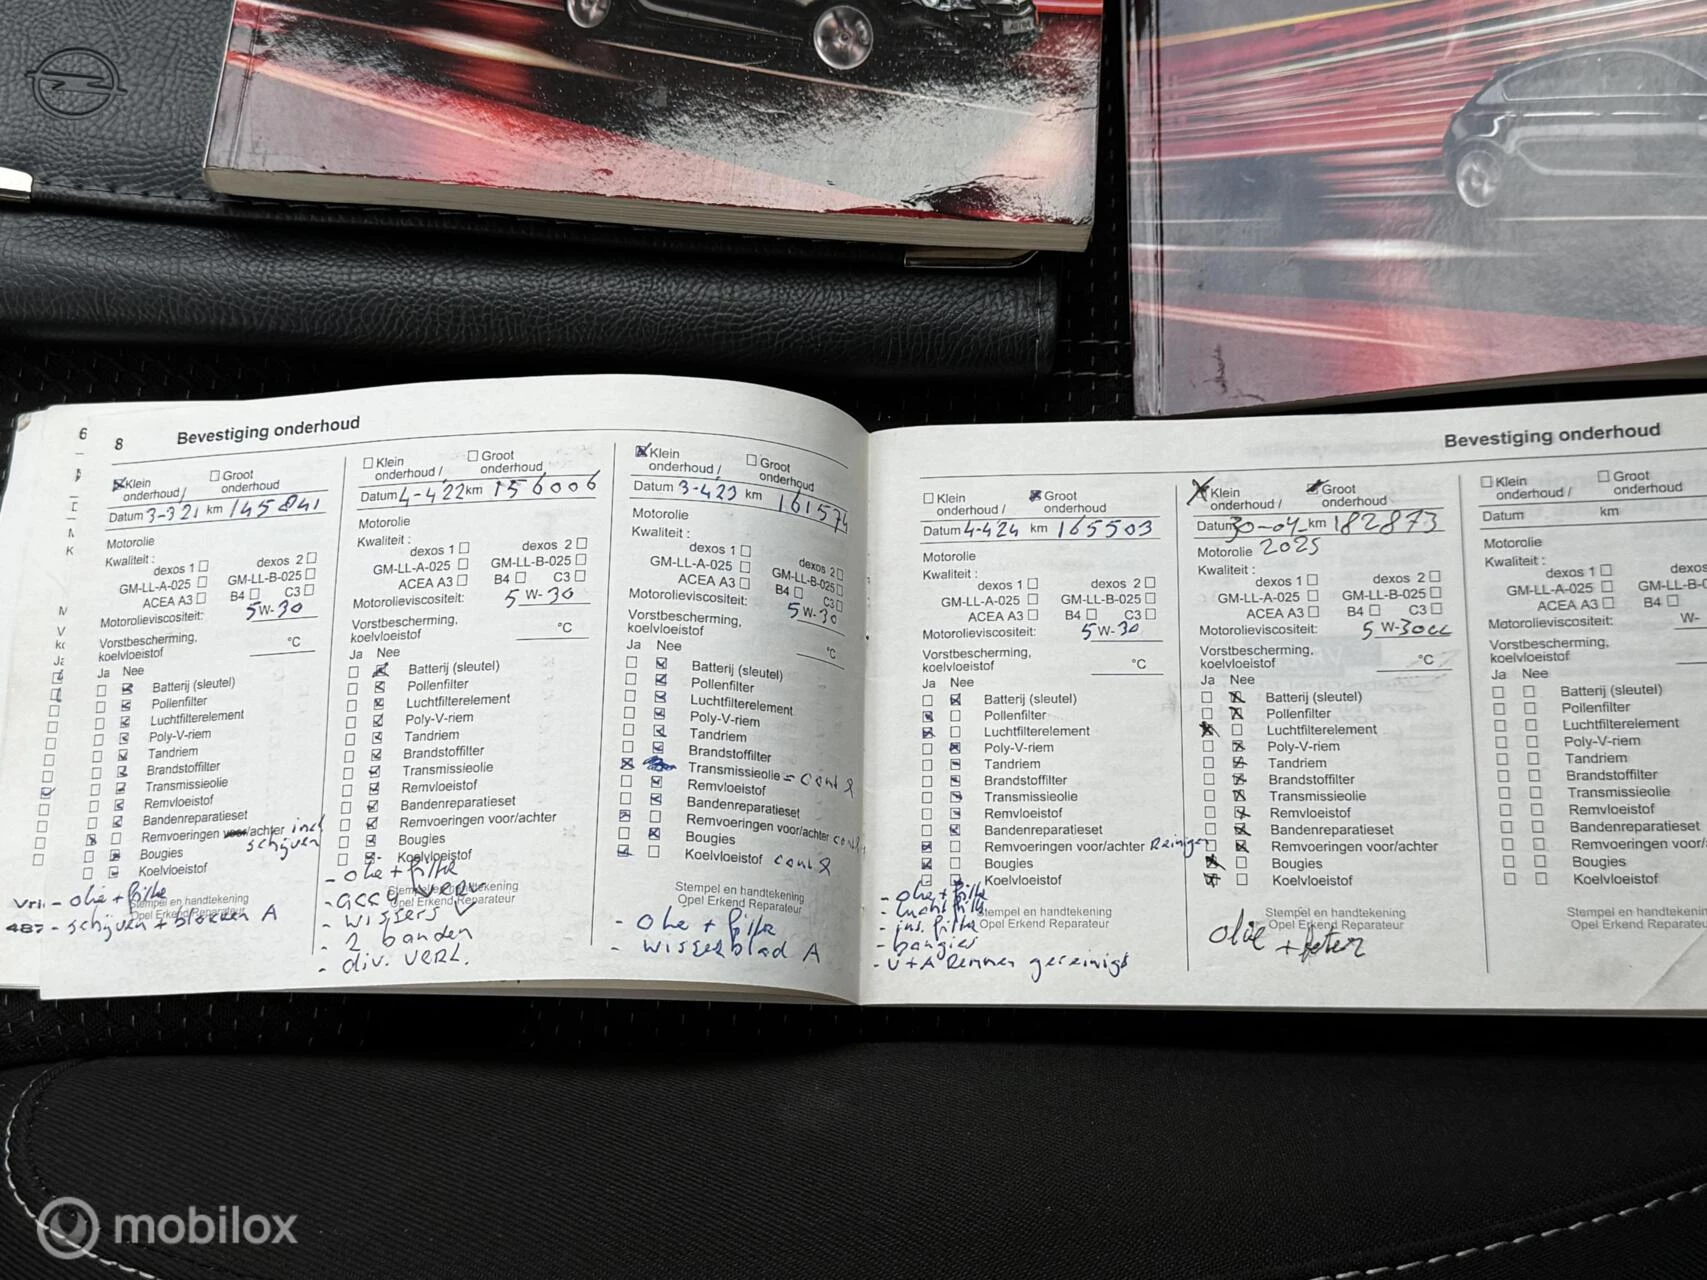 6
8 Bevestiging onderhoud
Klein onderhoud / Groot onderhoud
Datum 3-3 21 km 145841
Motorolie
Kwaliteit :
dexos 1 dexos 2
GM-LL-A-025 GM-LL-B-025
ACEA A3 B4 C3
Motorolieviscositeit: 5 W-30
Vorstbescherming,
koelvloeistof °C
Ja Nee
Batterij (sleutel)
Pollenfilter
Luchtfilterelement
Poly-V-riem
Tandriem
Brandstoffilter
Transmissieolie
Remvloeistof
Bandenreparatieset
Remvoeringen voor/achter incl
schijven
Bougies
Koelvloeistof
Stempel en handtekening
Opel Erkend Reparateur
- olie + filte
- schijven + blokken A
Klein onderhoud / Groot onderhoud
Datum 4-4 22 km 156006
Motorolie
Kwaliteit :
dexos 1 dexos 2
GM-LL-A-025 GM-LL-B-025
ACEA A3 B4 C3
Motorolieviscositeit: 5 W-30
Vorstbescherming,
koelvloeistof °C
Ja Nee
Batterij (sleutel)
Pollenfilter
Luchtfilterelement
Poly-V-riem
Tandriem
Brandstoffilter
Transmissieolie
Remvloeistof
Bandenreparatieset
Remvoeringen voor/achter
Bougies
Koelvloeistof
Stempel en handtekening
Opel Erkend Reparateur
- olie + filte
- accu verv
- wissers
- 2 banden
- div. verl.
Klein onderhoud / Groot onderhoud
Datum 3-4 23 km 161574
Motorolie
Kwaliteit :
dexos 1 dexos 2
GM-LL-A-025 GM-LL-B-025
ACEA A3 B4 C3
Motorolieviscositeit: 5 W-30
Vorstbescherming,
koelvloeistof °C
Ja Nee
Batterij (sleutel)
Pollenfilter
Luchtfilterelement
Poly-V-riem
Tandriem
Brandstoffilter
Transmissieolie = cont
Remvloeistof
Bandenreparatieset
Remvoeringen voor/achter
Bougies
Koelvloeistof cont
Stempel en handtekening
Opel Erkend Reparateur
- olie + filte
- wisserblad A
Bevestiging onderhoud
Klein onderhoud / Groot onderhoud
Datum 4-4 24 km 165503
Motorolie
Kwaliteit :
dexos 1 dexos 2
GM-LL-A-025 GM-LL-B-025
ACEA A3 B4 C3
Motorolieviscositeit: 5 W-30
Vorstbescherming,
koelvloeistof °C
Ja Nee
Batterij (sleutel)
Pollenfilter
Luchtfilterelement
Poly-V-riem
Tandriem
Brandstoffilter
Transmissieolie
Remvloeistof
Bandenreparatieset
Remvoeringen voor/achter Reinigen
Bougies
Koelvloeistof
Stempel en handtekening
Opel Erkend Reparateur
- olie + filte
- lucht filte
- ins. filte
- bougies
- V+A Remmen gereinigt
Klein onderhoud / Groot onderhoud
Datum 30-04- km 182873
Motorolie 2025
Kwaliteit :
dexos 1 dexos 2
GM-LL-A-025 GM-LL-B-025
ACEA A3 B4 C3
Motorolieviscositeit: 5 W-30
Vorstbescherming,
koelvloeistof °C
Ja Nee
Batterij (sleutel)
Pollenfilter
Luchtfilterelement
Poly-V-riem
Tandriem
Brandstoffilter
Transmissieolie
Remvloeistof
Bandenreparatieset
Remvoeringen voor/achter
Bougies
Koelvloeistof
Stempel en handtekening
Opel Erkend Reparateur
olie +
Klein onderhoud / Groot onderhoud
Datum km
Motorolie
Kwaliteit :
dexos 1 dexos
GM-LL-A-025 GM-LL-B-0
ACEA A3 B4
Motorolieviscositeit: W-
Vorstbescherming,
koelvloeistof
Ja Nee
Batterij (sleutel)
Pollenfilter
Luchtfilterelement
Poly-V-riem
Tandriem
Brandstoffilter
Transmissieolie
Remvloeistof
Bandenreparatieset
Remvoeringen voor/
Bougies
Koelvloeistof
Stempel en handtekening
Opel Erkend Reparateur
mobilox